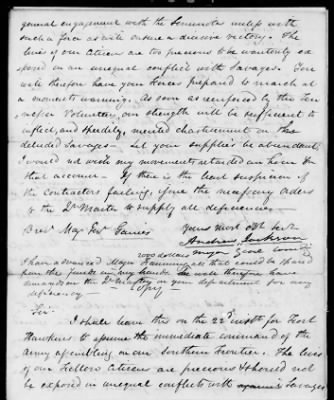 general engagement with the Seminoles unless with
such a force as will ensure a decisive victory. The
lives of our Citizens are too precious to be wantonly ex
posed in an unequal conflict with Savages. You
will therefore have your forces prepared to march at
a moments warning. As soon as reenforced by the Ten
nessee Volunteers, our strength will be sufficient to
inflict, and speedily, merited chastisement on these
deluded Savages — Let your supplies be abundant
I would not wish my movements retarded an hour on
that account — If there is the least suspicion of
the Contractors failing, give the necessary orders
to the Qr Master to supply all deficiencies —
Brev Maj Genl Gaines Yours most Obt Servt
Andrew Jackson
Major Genl Comdg
2000 dollars
I have advanced Major Fanning, all that could be spared
from the funds in my hands. You will therefore have
demands on the Qr Master, in your department for any
deficiency. (Copy)
Sir.
I shall leave this on the 22d inst for Fort
Hawkins to assume the immediate command of the
Army assembling on our Southern Frontier. The lives
of our Fellow Citizens are precious & should not
be exposed in unequal conflicts with Savages